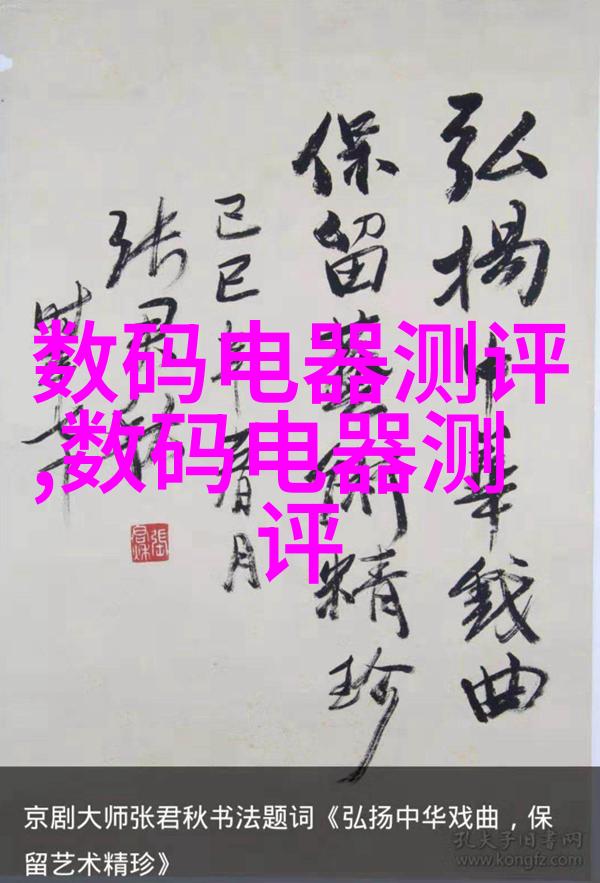 弘揚中華戲曲
保留藝術精珍
己巳年春月
张君秋
数码电器测评
,数码电器测
评
京剧大师张君秋书法题词《弘扬中华戏曲，保
留艺术精珍》
孔夫子旧书网
www.kongfz.com